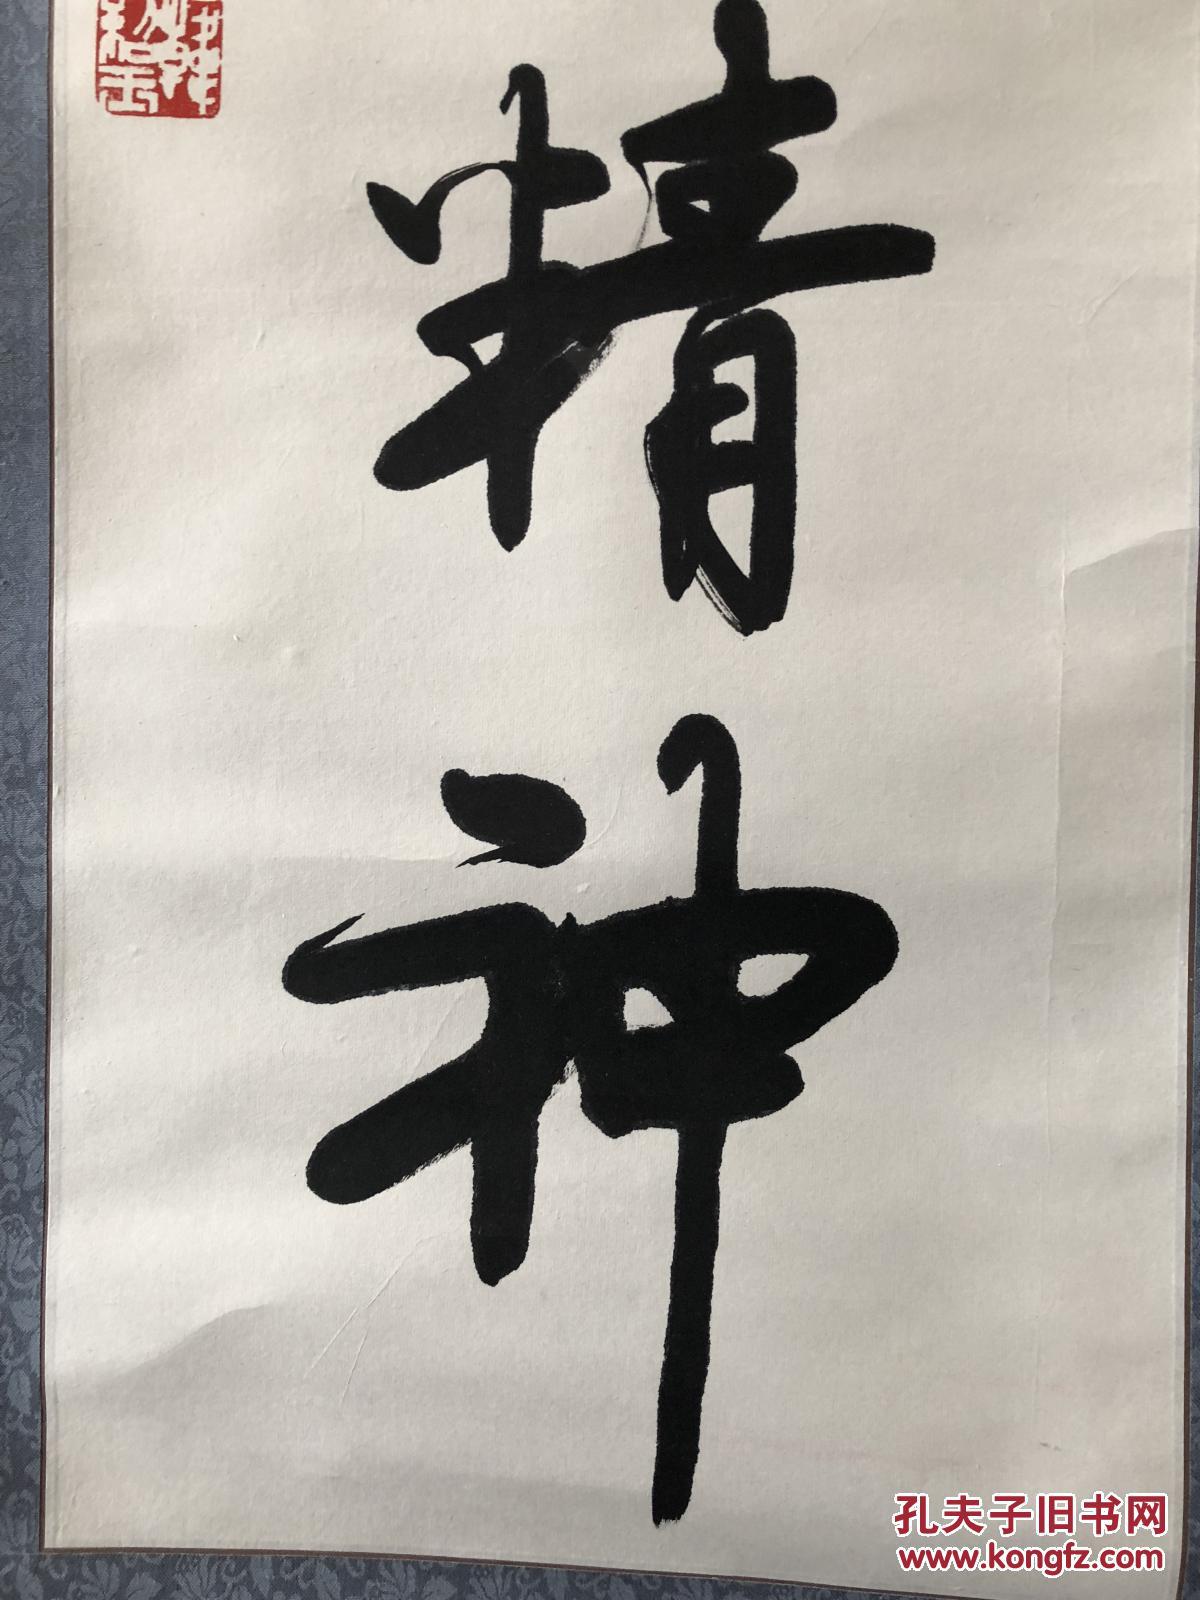 精神
孔夫子旧书网
www.kongfz.com